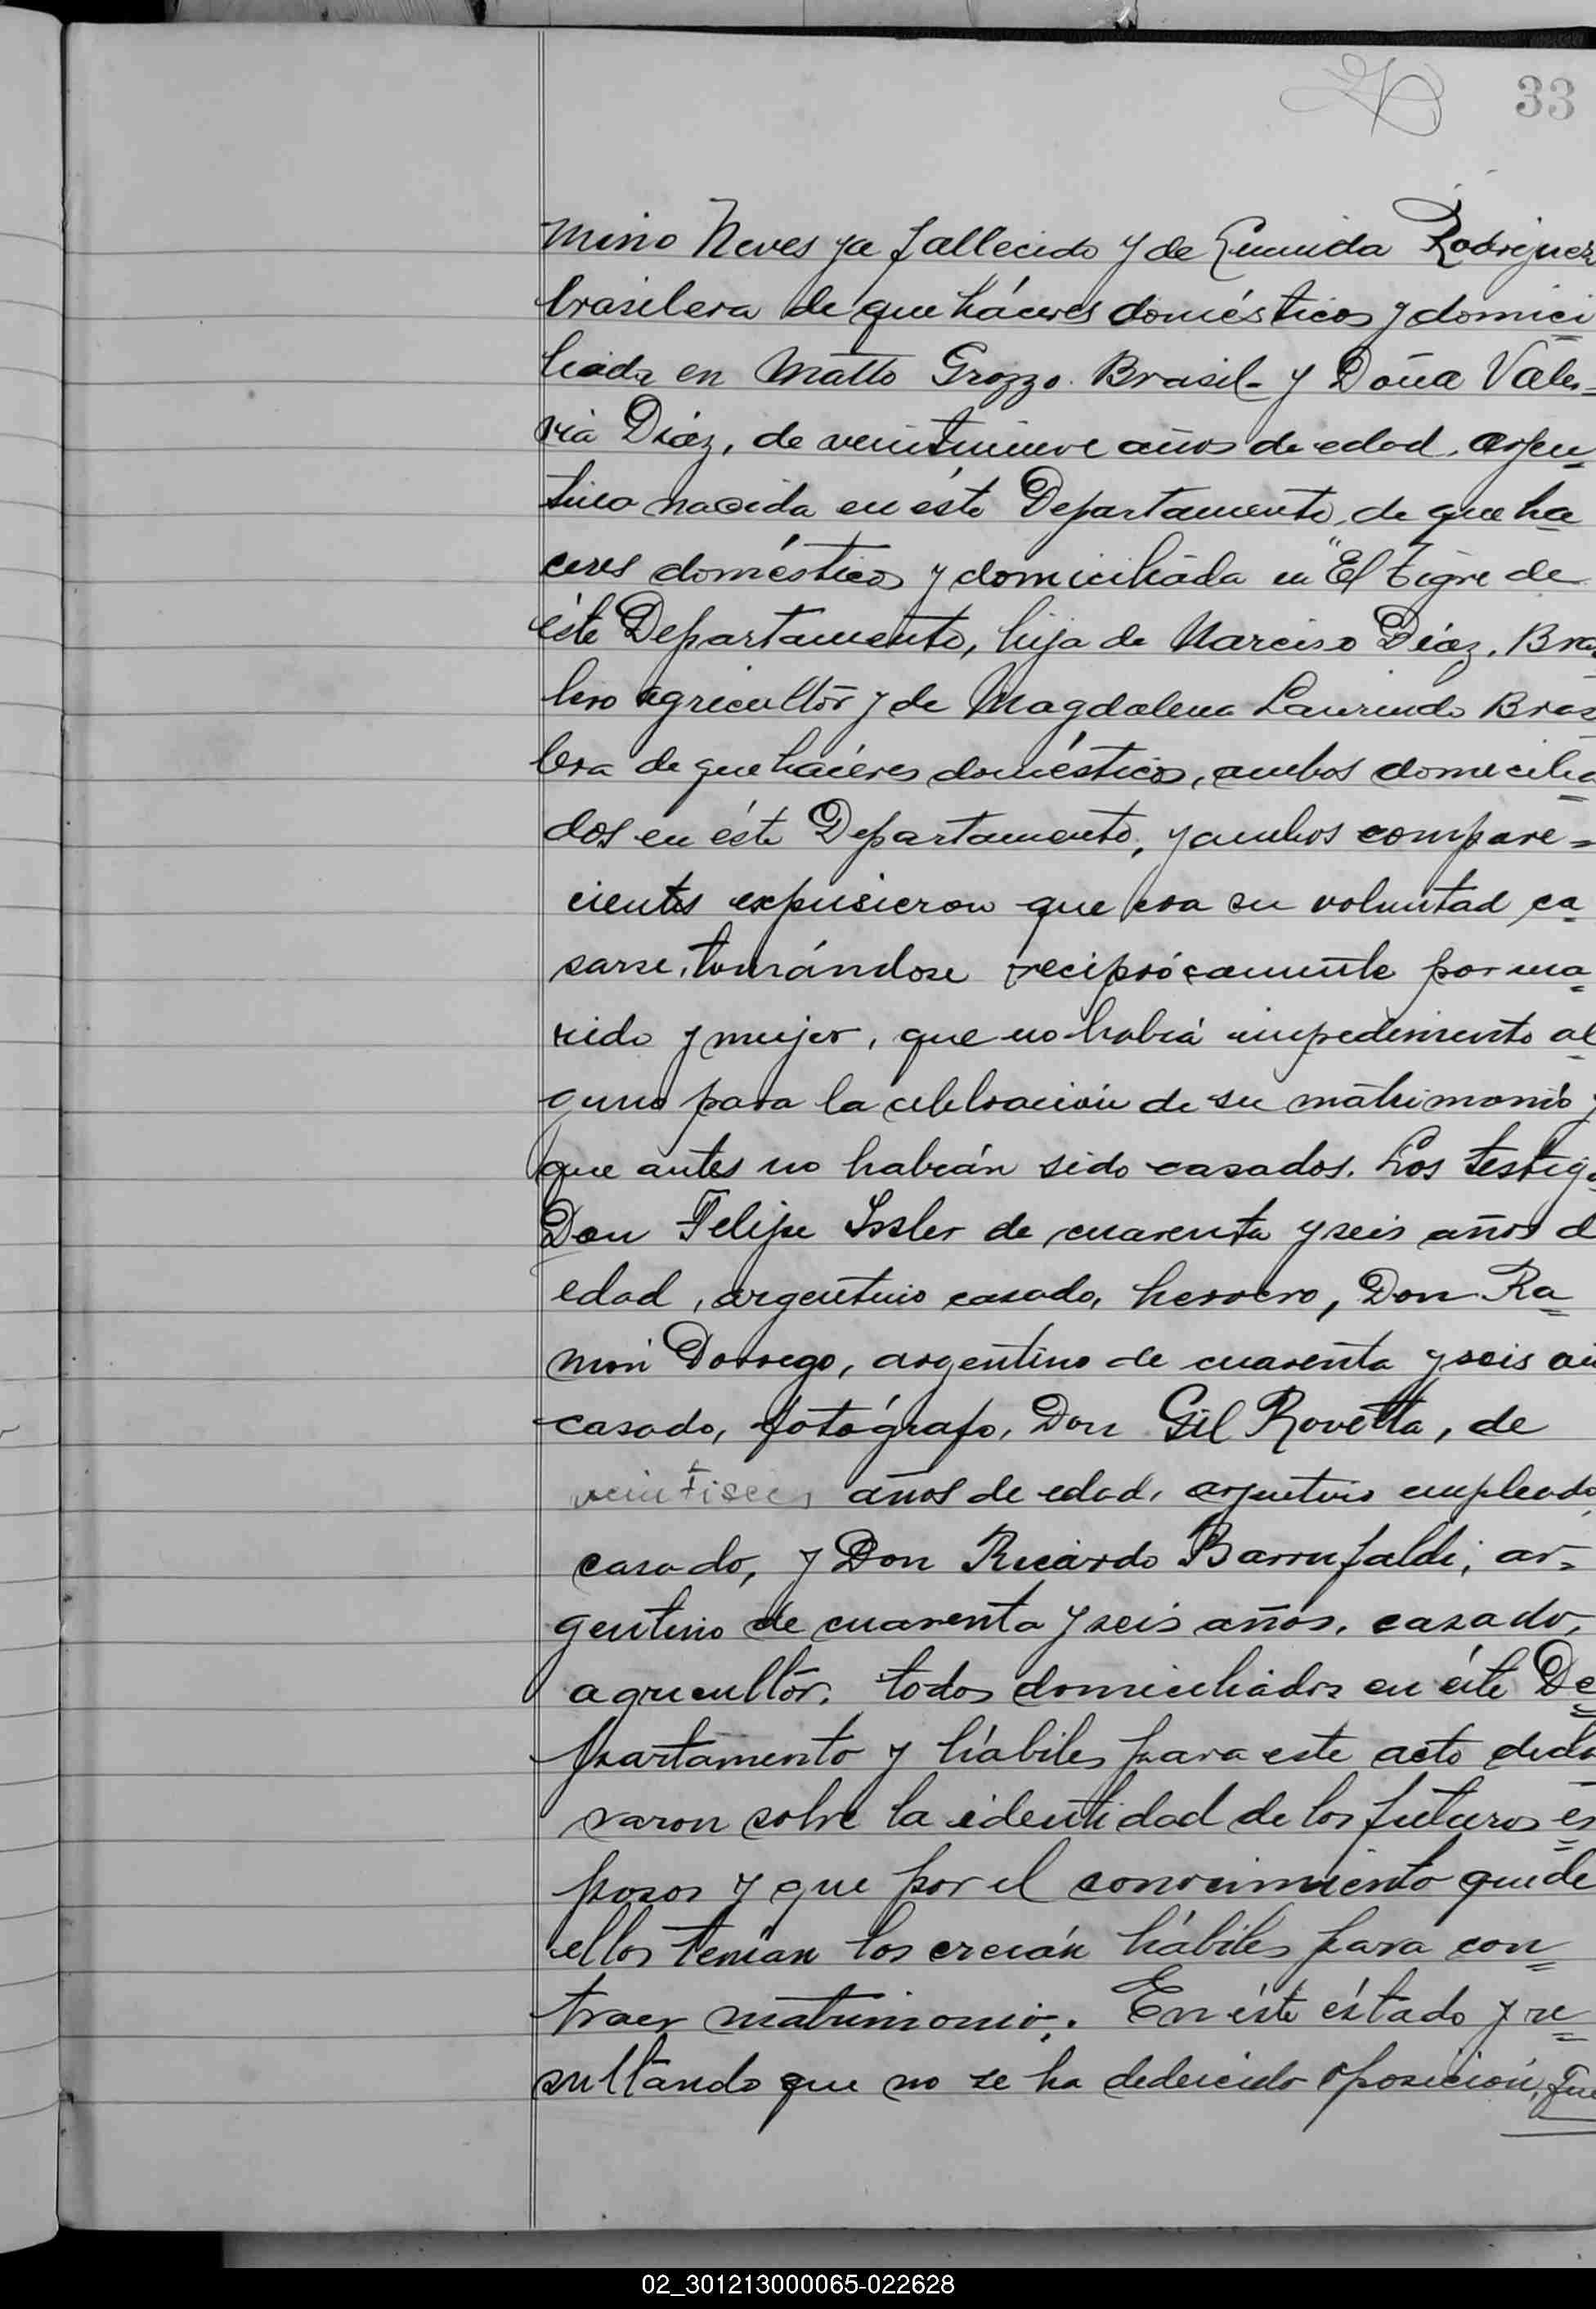 33
mino Neves ya fallecido y de Eumida Rodriguez
brasilera de que háceres domésticos y domici
liada en Matto Grozzo. Brasil- y Doña Vale=
ria Diáz, de veintinueve años de edad, argen
tina nacida en éste Departamento, de que ha
ceres domésticos y domiciliada en "El Tigre de
éste Departamento, hija de Narciso Diáz, Bra
lero agricultor y de Magdalena Laurindo Bras
lera de que haceres domésticos, ambos domicilia
dos en éste Departamento, y ambos compare=
cientes expusieron que era su voluntad ca
sarse, tomándose reciprócamente por ma
rido y mujer, que no habiá impedimento al
guno para la celebración de su matrimonio y
que antes no habián sido casados. Los testigo
Don Felipe Issler de cuarenta y seis años d
edad, argentino casado, herrero, Don Ra
món Dorrego, argentino de cuarenta y seis añ
casado, fotógrafo, Don Gil Rovetta, de
veintiseis años de edad, argentino empleado
casado, y Don Ricardo Barrufaldi, ar=
gentino de cuarenta y seis años, casado,
agricultor, todos domiciliados en éste De
partamento y hábiles para este acto decla
raron sobre la identidad de los futuros es
posos y que por el conocimiento que de
ellos tenían los creián hábiles para con
traer matrimonio,. En éste éstado y re
sultando que no se ha deducido oposición, fue
02_301213000065-022628